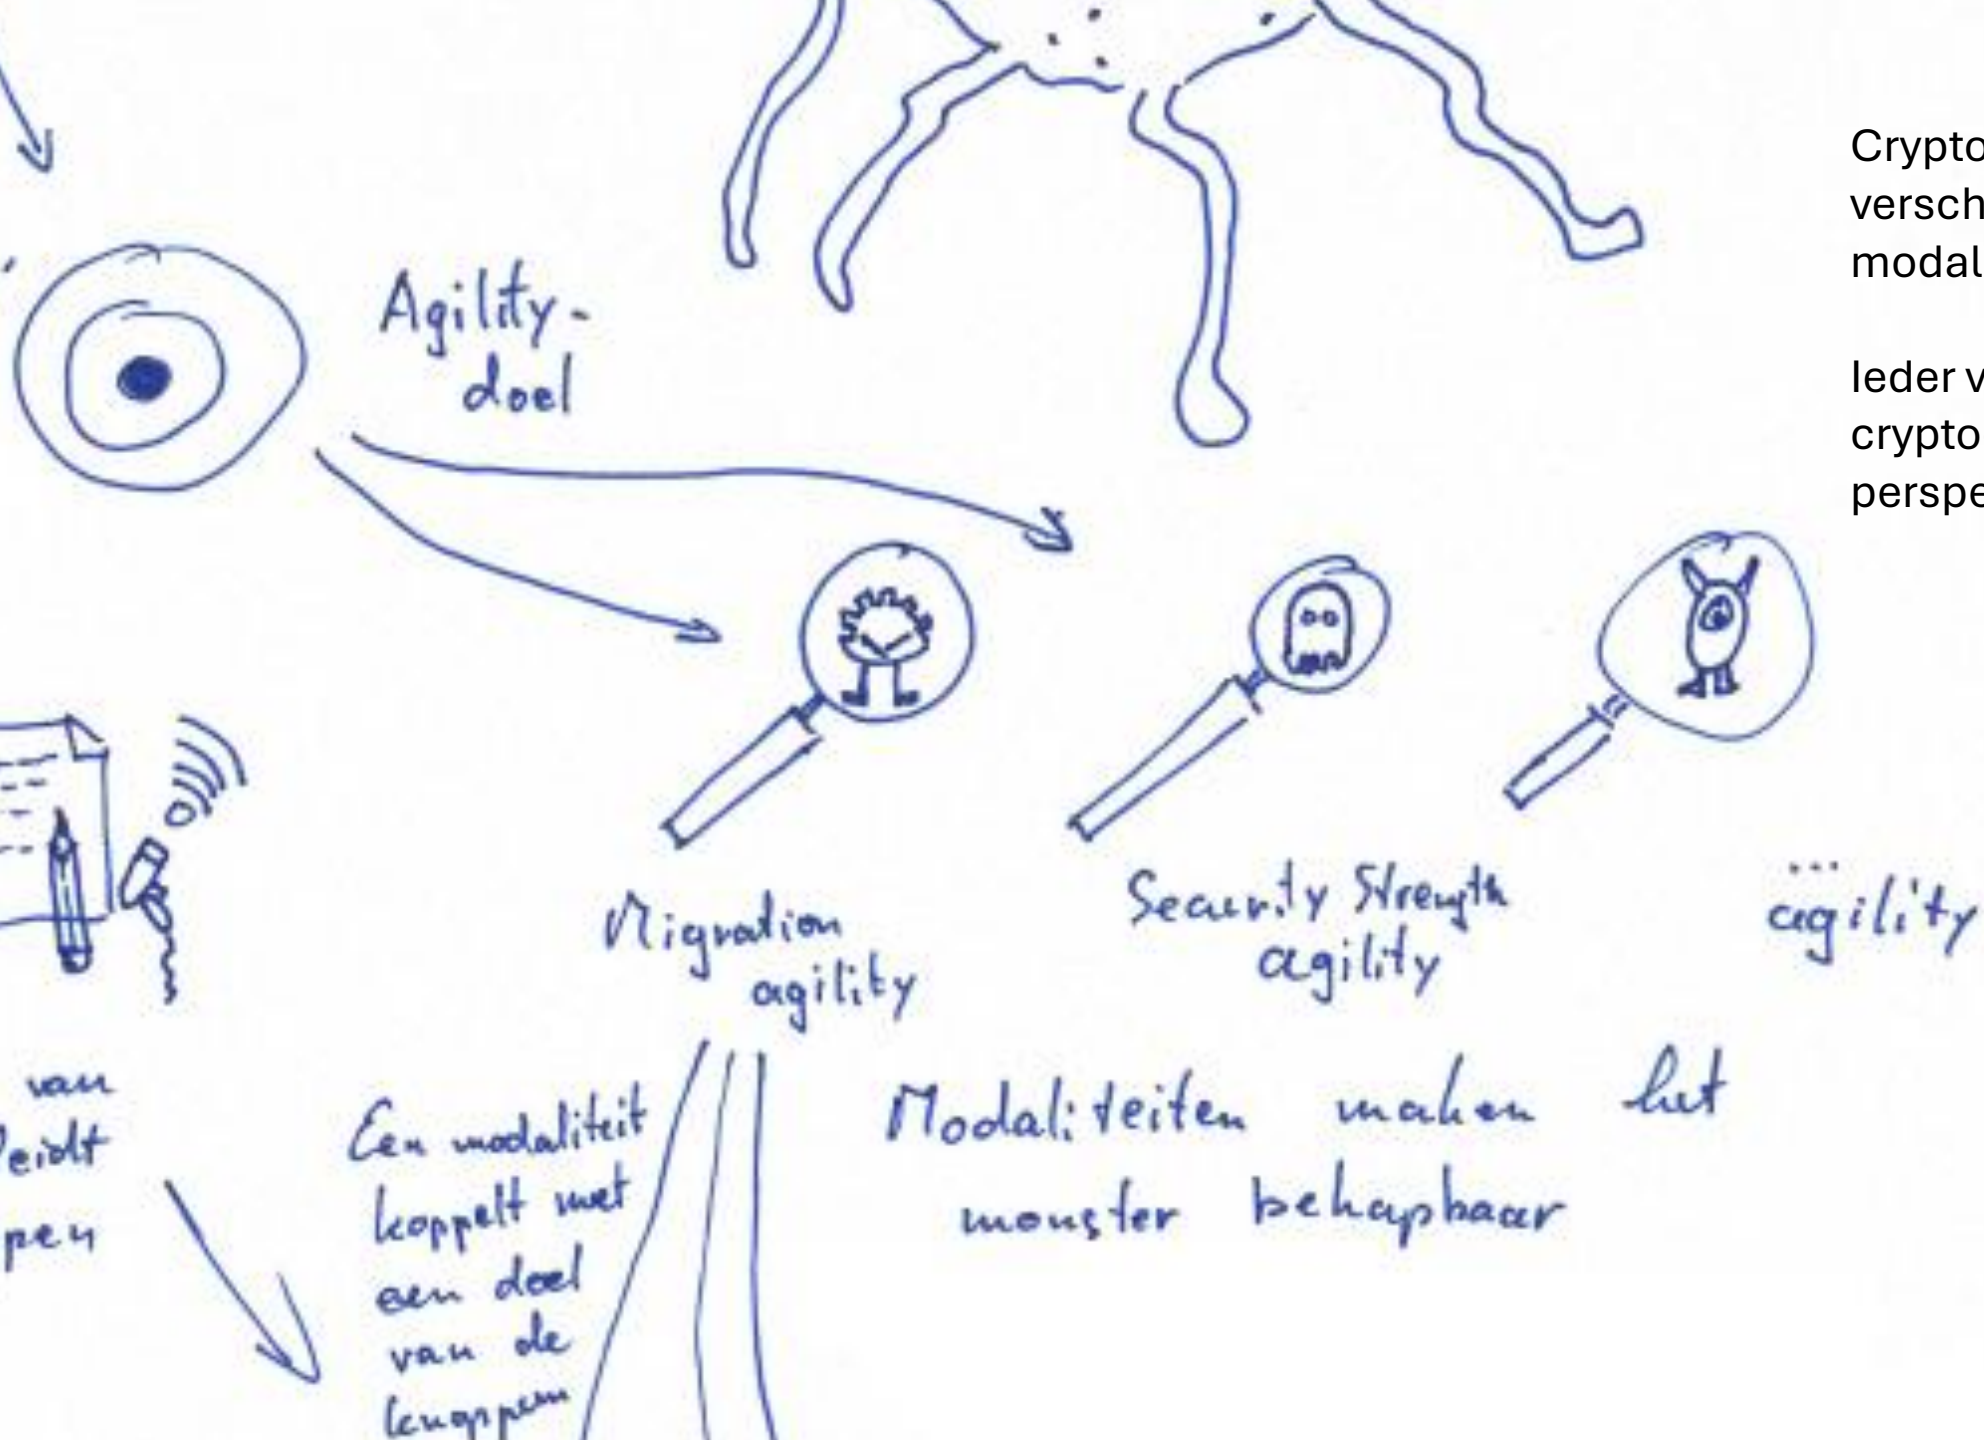 Crypto
versch
modal
Ieder v
crypto
perspe
Agility-
doel
Migration
agility
Security Strength
agility
...
agility
van
leidt
ppen
Een modaliteit
koppelt met
een deel
van de
knoppen
Modaliteiten maken het
monster behapbaar